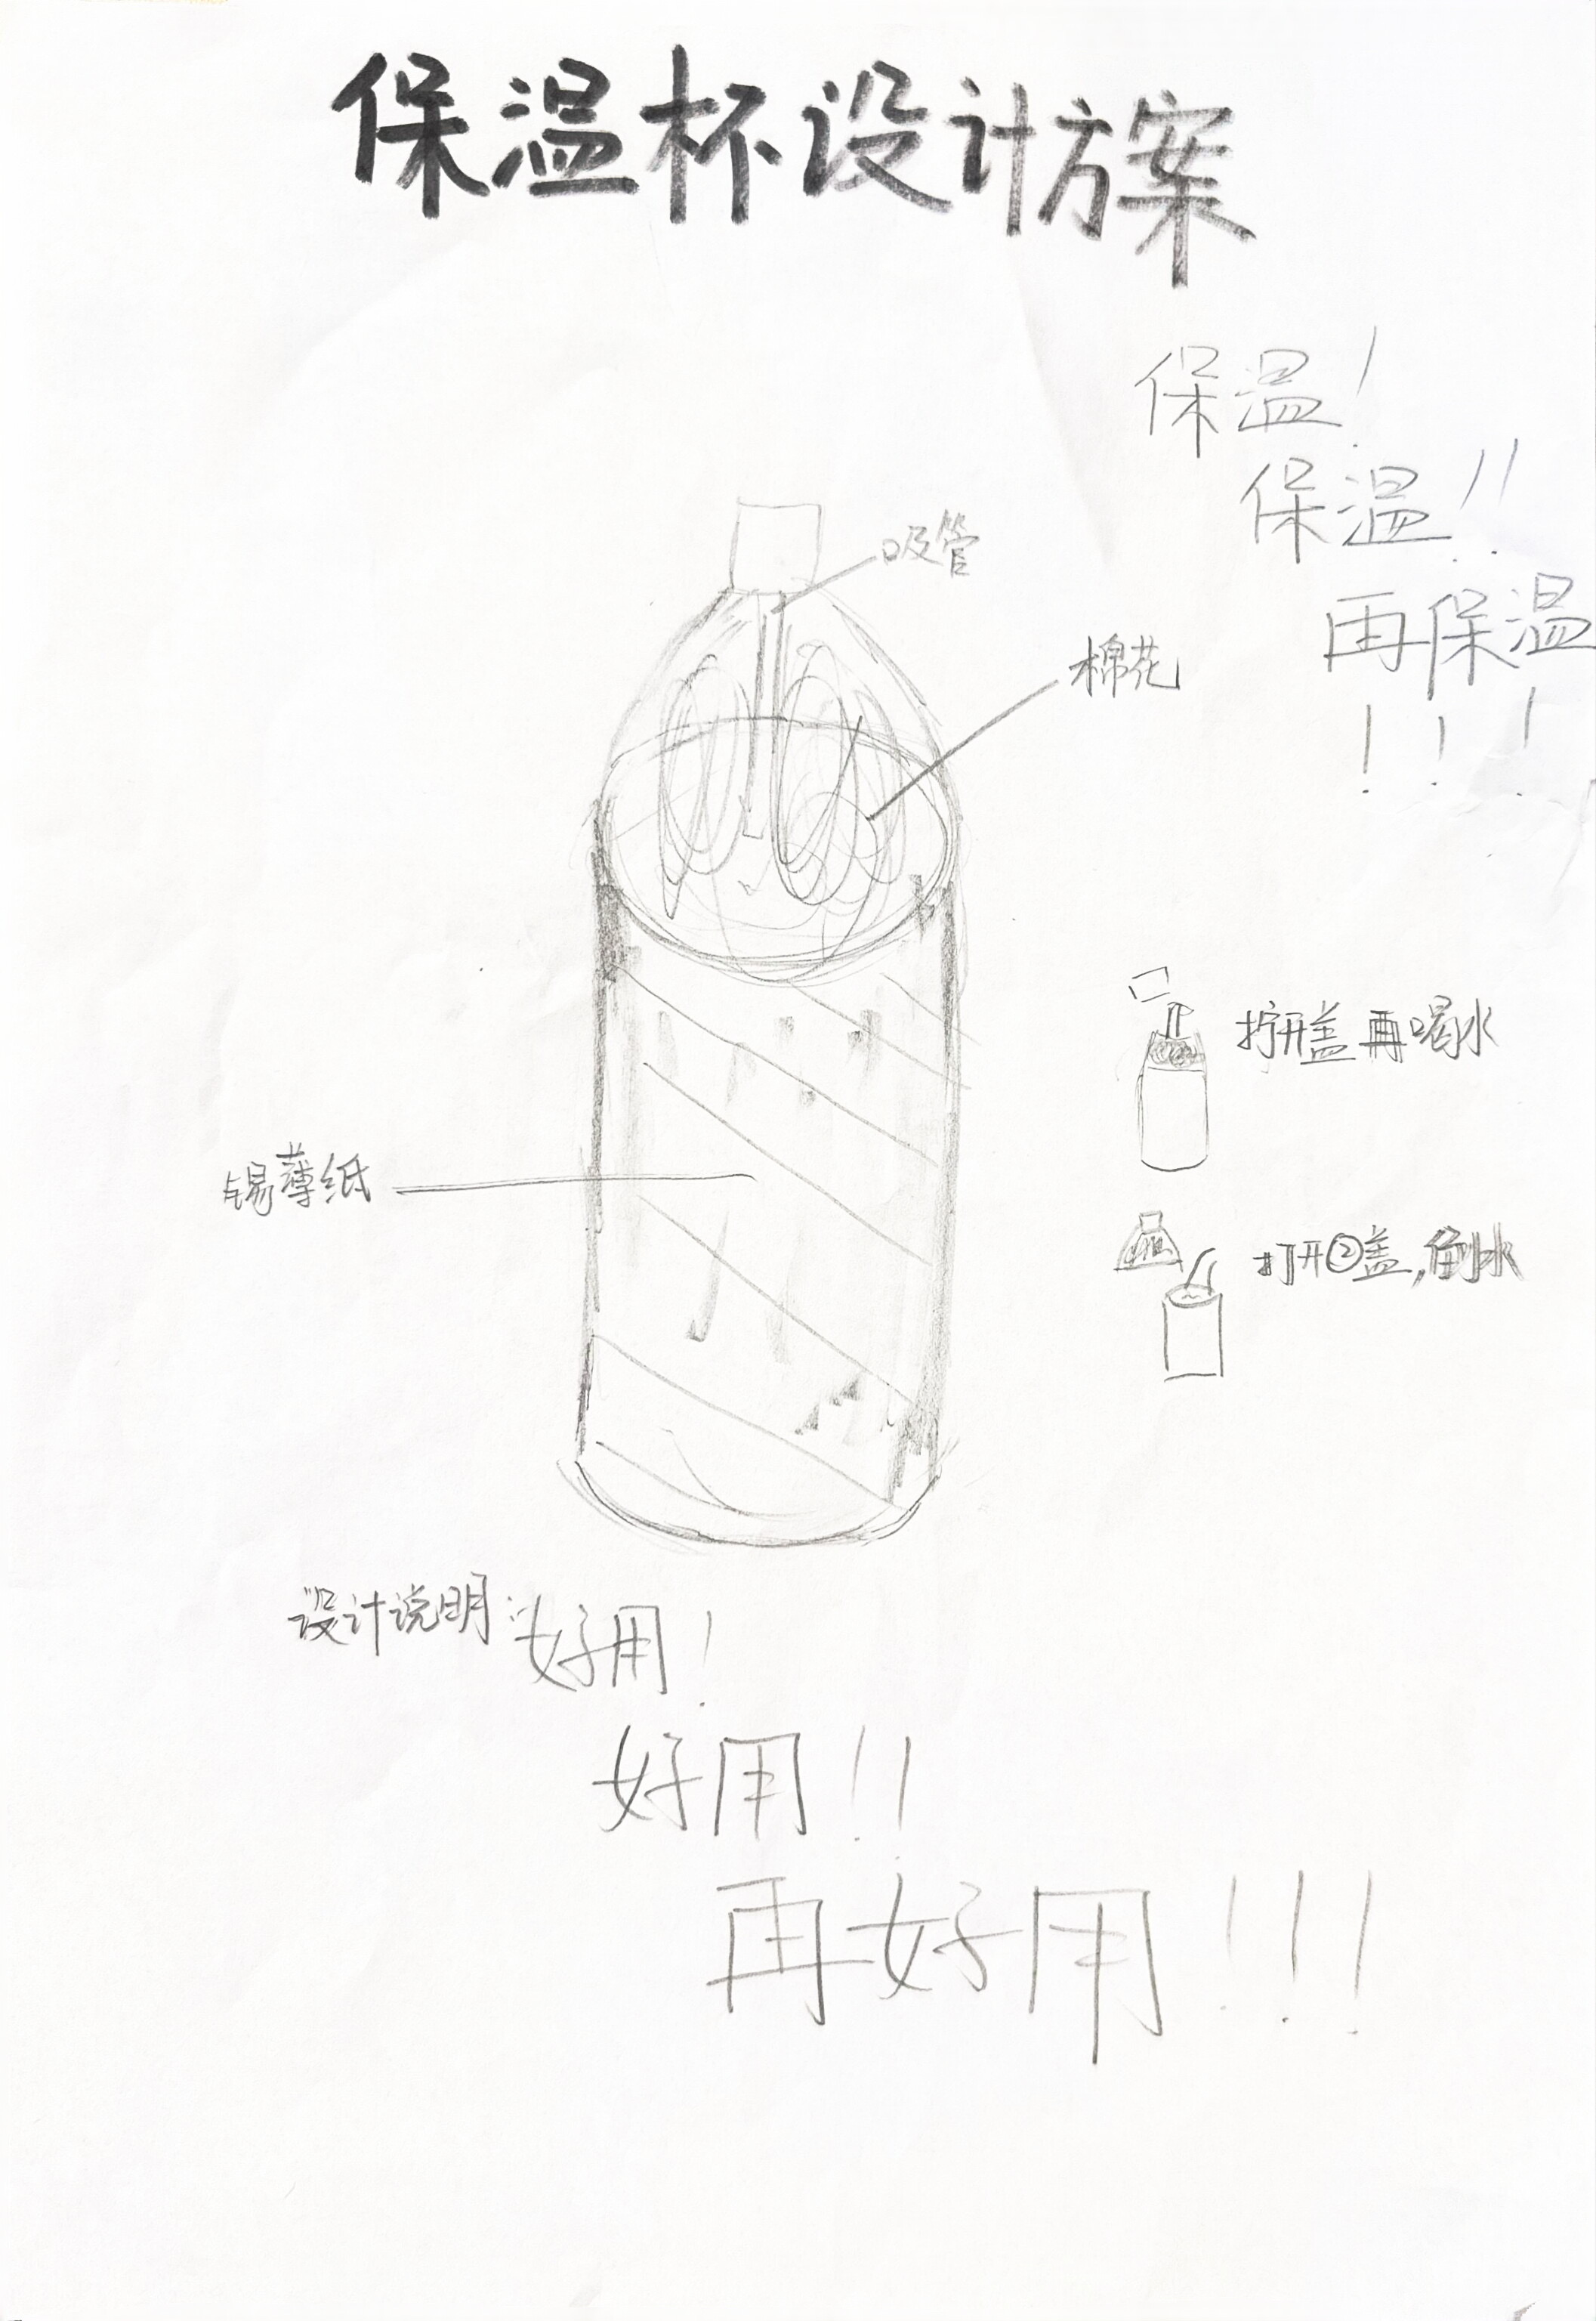 保温杯设计方案
保温！
保温！！
再保温
！！！
吸管
棉花
拧开盖再喝水
锡薄纸
打开②盖，倒水
设计说明：好用！
好用！！
再好用！！！